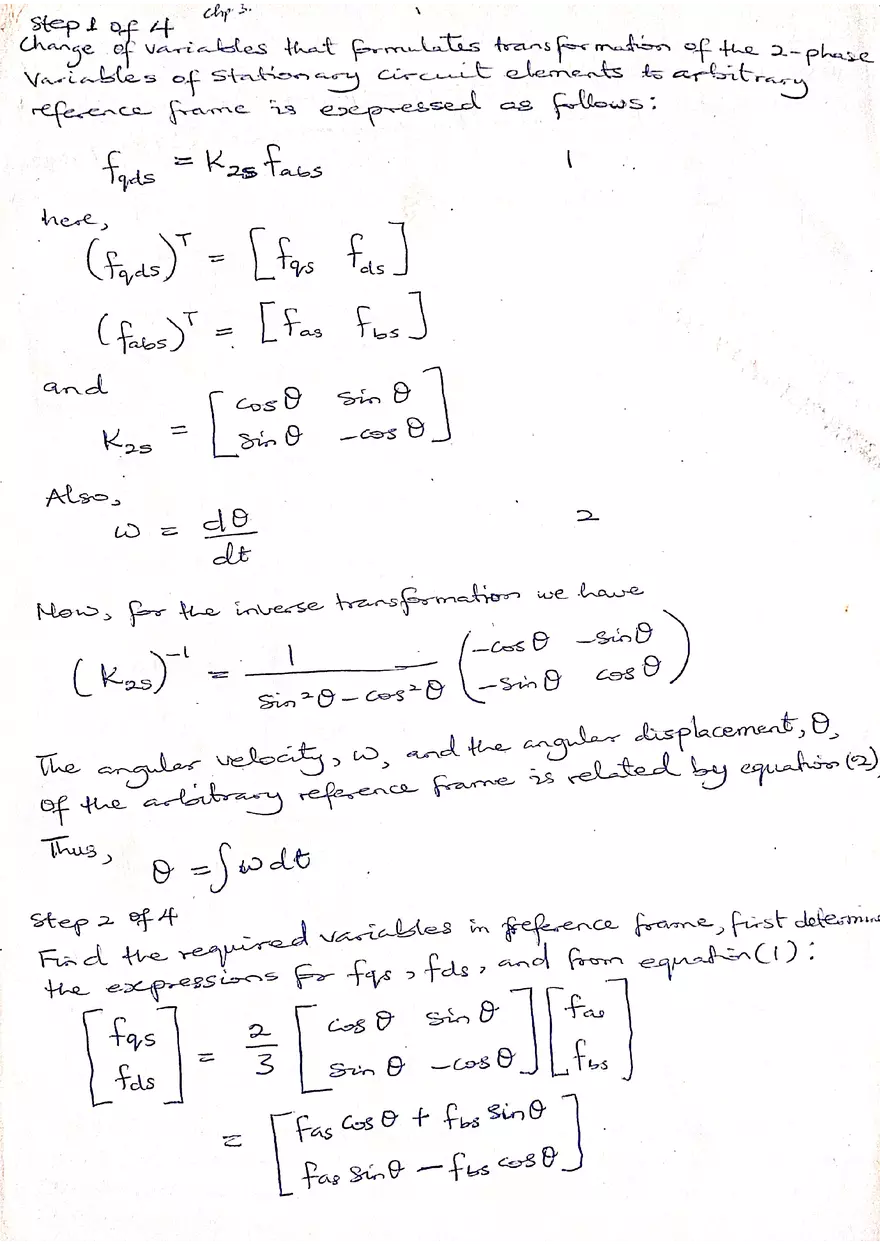 Step 1 of 4 Chp. 3.
Change of variables that formulates transformation of the 2-phase
Variables of stationary circuit elements to arbitrary
reference frame is expressed as follows:
f_qds = K_2s f_abs 1
here,
(f_qds)^T = [f_qs f_ds]
(f_abs)^T = [f_as f_bs]
and
K_2s = [cos θ sin θ
sin θ -cos θ]
Also,
ω = dθ/dt 2
Now, for the inverse transformation we have
(K_2s)^-1 = 1/(sin²θ - cos²θ) (-cos θ -sin θ
-sin θ cos θ)
The angular velocity, ω, and the angular displacement, θ,
of the arbitrary reference frame is related by equation (2),
Thus,
θ = ∫ω dt
Step 2 of 4
Find the required variables in reference frame, first determine
the expressions for fqs, fds, and from equation (1):
[fqs
fds] = 2/3 [cos θ sin θ
sin θ -cos θ] [f_as
f_bs]
= [f_as cos θ + f_bs sin θ
f_as sin θ - f_bs cos θ]